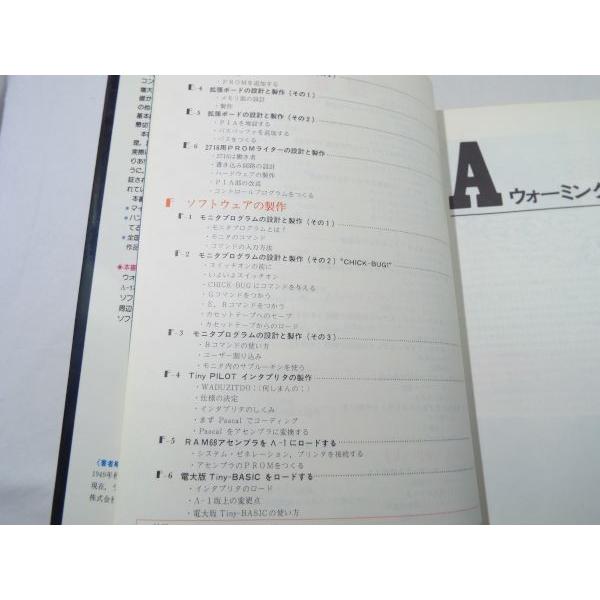 ・PROMを追加する
E-4 拡張ボードの設計と製作(その1)
・メモリ部の設計
・製作
E-5 拡張ボードの設計と製作(その2)
・PIAを増設する
・バスバッファを追加する
・バスをつくる
E-6 2716用PROMライターの設計と製作
・2716は働き者
・書き込み回路の設計
・ハードウェアの製作
・PIA部の改良
・コントロールプログラムをつくる
F ソフトウェアの製作
F-1 モニタプログラムの設計と製作(その1)
・モニタプログラムとは?
・モニタのコマンド
・コマンドの入力方法
F-2 モニタプログラムの設計と製作(その2)“CHICK-BUG!”
・スイッチオンの前に
・いよいよスイッチオン
・CHICK-BUGにコマンドを与える
・Gコマンドをつかう
・E，Rコマンドをつかう
・カセットテープへのセーブ
・カセットテープからのロード
F-3 モニタプログラムの設計と製作(その3)
・Bコマンドの使い方
・ユーザー割り込み
・モニタ内のサブルーチンを使う
F-4 Tiny PILOT インタプリタの製作
・WADUZITDO：(何しまんの：)
・仕様の決定
・インタプリタのしくみ
・まず Pascal でコーディング
・Pascal をアセンブラに変換する
F-5 RAM68アセンブラを Λ-1にロードする
・システム・ゼネレーション，プリンタを接続する
・アセンブラのPROMをつくる
F-6 電大版 Tiny-BASIC をロードする
・インタプリタのロード
・Λ-1坂上の変更点
・電大版 Tiny-BASICの使い方
A ウォーミング